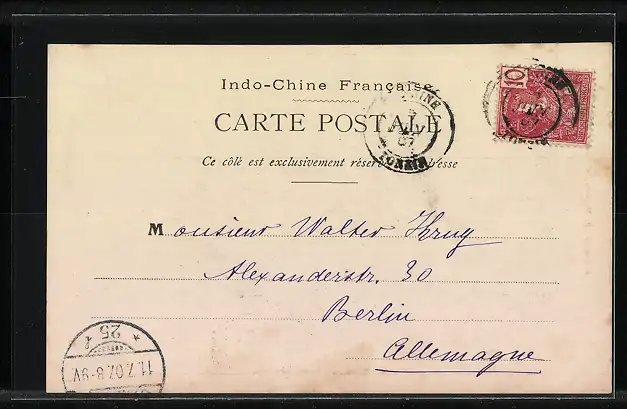 10
Indo-Chine Française
CARTE POSTALE
TONKIN
Ce côté est exclusivement réservé
Monsieur Walter Krug
Alexanderstr. 30
Berlin
Allemagne
* 25 *
11.7.07.8-9V.